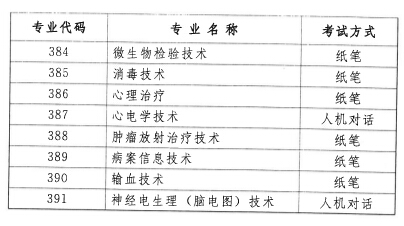 专业代码 专业名称 考试方式
384 微生物检验技术 纸笔
385 消毒技术 纸笔
386 心理治疗 纸笔
387 心电学技术 人机对话
388 肿瘤放射治疗技术 纸笔
389 病案信息技术 纸笔
390 输血技术 纸笔
391 神经电生理（脑电图）技术 人机对话